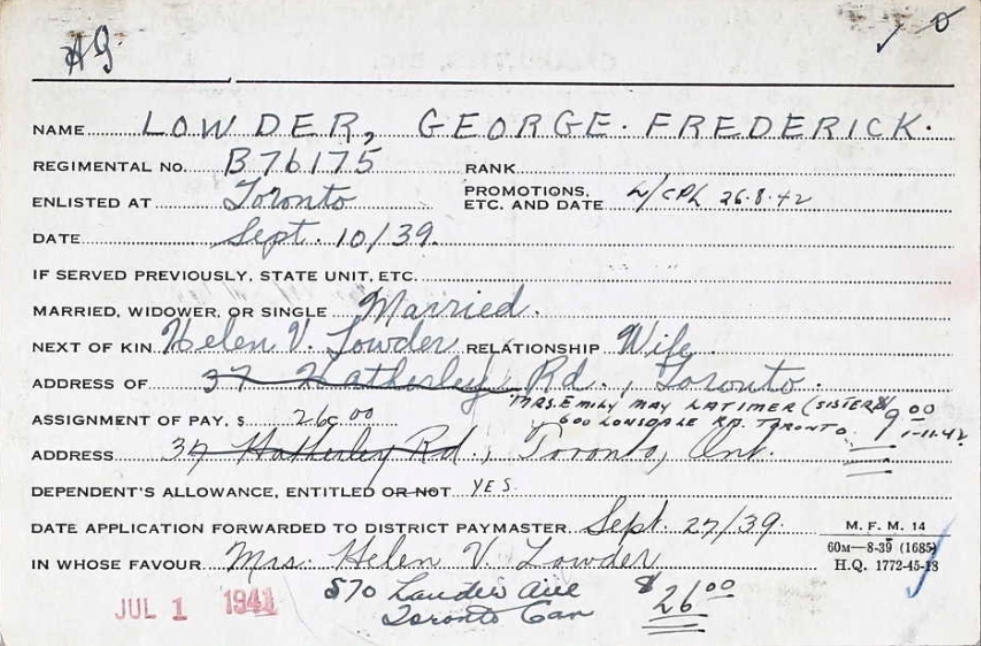 AG. ✓ 0
NAME LOWDER, GEORGE. FREDERICK.
REGIMENTAL NO. B76175 RANK
ENLISTED AT Toronto PROMOTIONS, ETC. AND DATE L/CPL 26.8.42
DATE Sept. 10/39.
IF SERVED PREVIOUSLY, STATE UNIT, ETC.
MARRIED, WIDOWER, OR SINGLE Married.
NEXT OF KIN Helen V. Lowder RELATIONSHIP Wife.
ADDRESS OF 37 Hatherley Rd., Toronto.
MRS. EMILY MAY LATIMER (SISTER) $9.00
ASSIGNMENT OF PAY, $ 26.00 600 LONSDALE RD. TORONTO. 1-11-42
ADDRESS 37 Hatherley Rd., Toronto, Ont.
DEPENDENT'S ALLOWANCE, ENTITLED OR NOT YES.
DATE APPLICATION FORWARDED TO DISTRICT PAYMASTER Sept. 27/39. M. F. M. 14
60M—8-39 (1685)
IN WHOSE FAVOUR Mrs. Helen V. Lowder H.Q. 1772-45-13
570 Lauder Ave $26.00
JUL 1 1941 Toronto Can